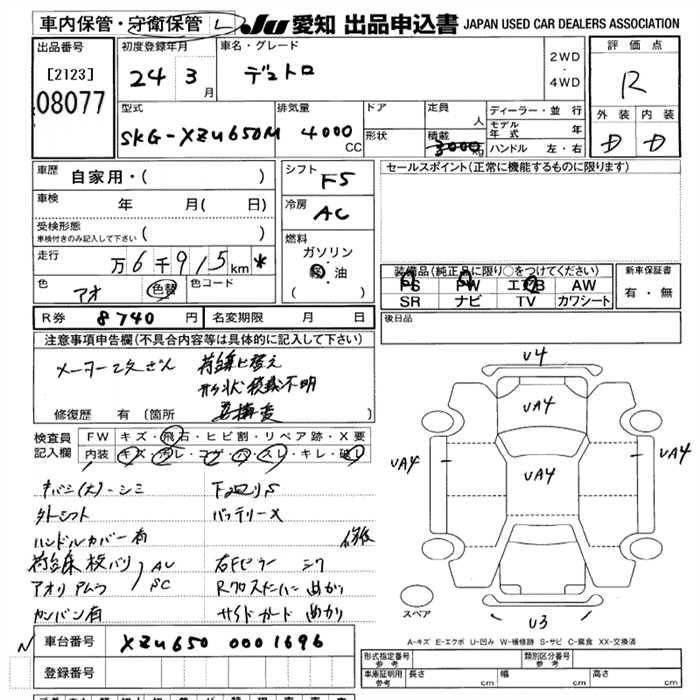 車内保管・守衛保管 L
JU 愛知 出品申込書 JAPAN USED CAR DEALERS ASSOCIATION
出品番号
[2123]
08077
初度登録年月
24 3 月
車名・グレード
デュトロ
2WD
・
4WD
評価点
R
外装 内装
D D
型式
SKG-XZU650M
排気量
4000 CC
ドア
形状
定員 人
積載 3000 kg
ディーラー・並行
モデル年式 年
ハンドル 左・右
車歴
自家用・( )
車検
年 月( 日)
受検形態
車検付きのみ記入して下さい ( )
走行
万 6 千 915 km *
色
アオ 色替
色コード
シフト
F5
冷房
AC
燃料
ガソリン
軽・油
( )
セールスポイント(正常に機能するものに限ります)
装備品(純正品に限り○をつけてください)
PS PW エアB AW
SR ナビ TV カワシート
新車保証書
有・無
R券 8740 円
名変期限 月 日
後日品
注意事項申告欄(不具合内容等は具体的に記入して下さい)
メーター改ざん 荷台乗せ替え
形状積載不明
修復歴 有(箇所
検査員
記入欄
FW キズ・飛石・ヒビ割・リペア跡・X要
内装 キズ・ヨゴレ・コゲ・穴・スレ・キレ・破レ
V4
UA4
UA4
UA4
UA4
U3
スペア
下廻りS
バッテリーX
ハンドルカバー有
カンバン有
サイドガード曲がり
A-キズ E-エクボ U-凹み W-補修跡 S-サビ C-腐食 XX-交換済
車台番号 XZU650 0001696
登録番号
形式指定番号
参考
類別区分番号
参考
車庫証明用
参考
長さ cm
幅 cm
高さ cm